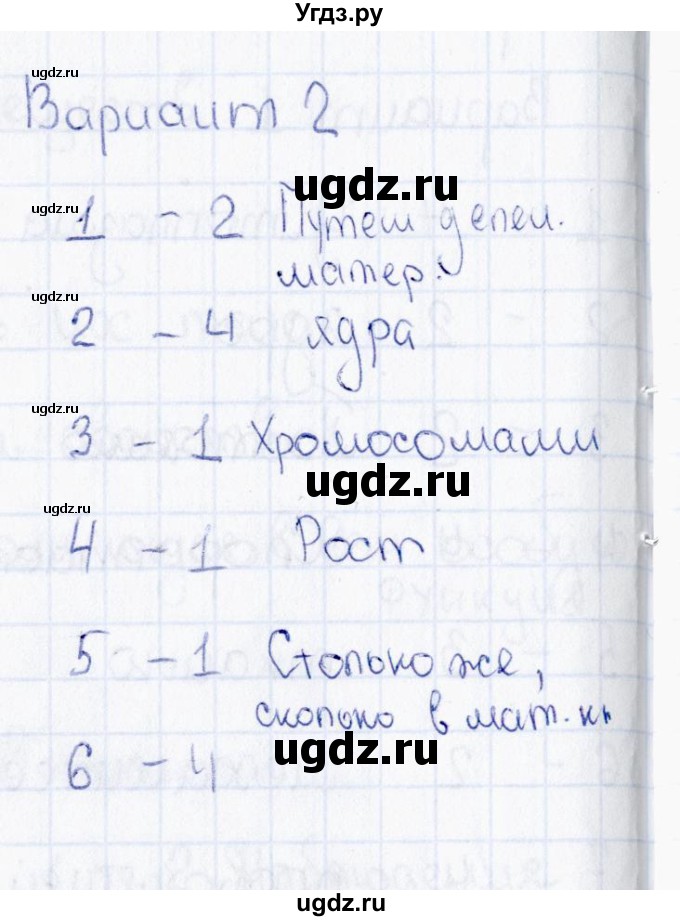 Угдз.ру
ugdz.ru
Вариант 2
ugdz.ru
ugdz.ru
1 - 2 Путем делен.
матер.
ugdz.ru
2 - 4 ядра
ugdz.ru
3 - 1 Хромосомами
ugdz.ru
ugdz.ru
4 - 1 Рост
ugdz.ru
5 - 1 Столько же,
сколько в мат. кл
ugdz.ru
ugdz.ru
6 - 4
ugdz.ru
ugdz.ru